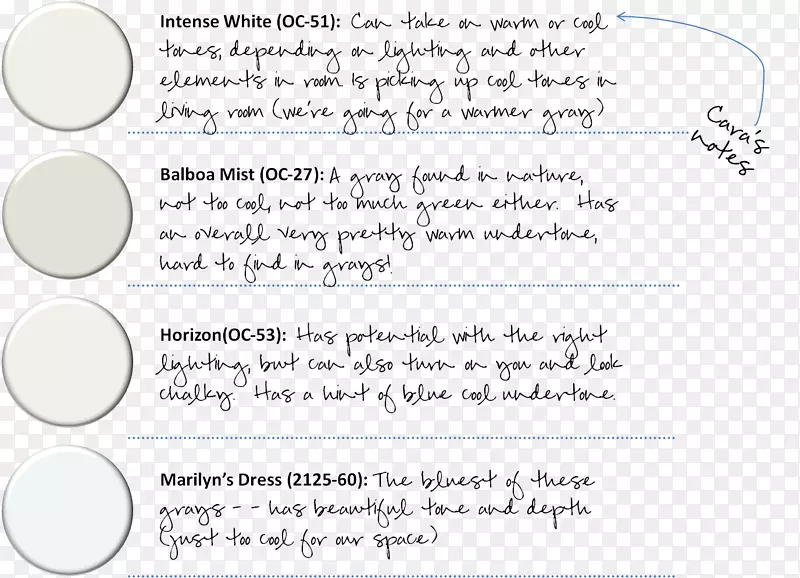 Intense White (OC-51): Can take on warm or cool
tones, depending on lighting and other
elements in room is picking up cool tones in
living room (we're going for a warmer gray)
Cara's
notes
Balboa Mist (OC-27): A gray found in nature,
not too cool, not too much green either. Has
an overall very pretty warm undertone,
hard to find in grays!
Horizon(OC-53): Has potential with the right
lighting, but can also turn on you and look
chalky. Has a hint of blue cool undertone.
Marilyn's Dress (2125-60): The bluest of these
grays - - has beautiful tone and depth
(just too cool for our space)